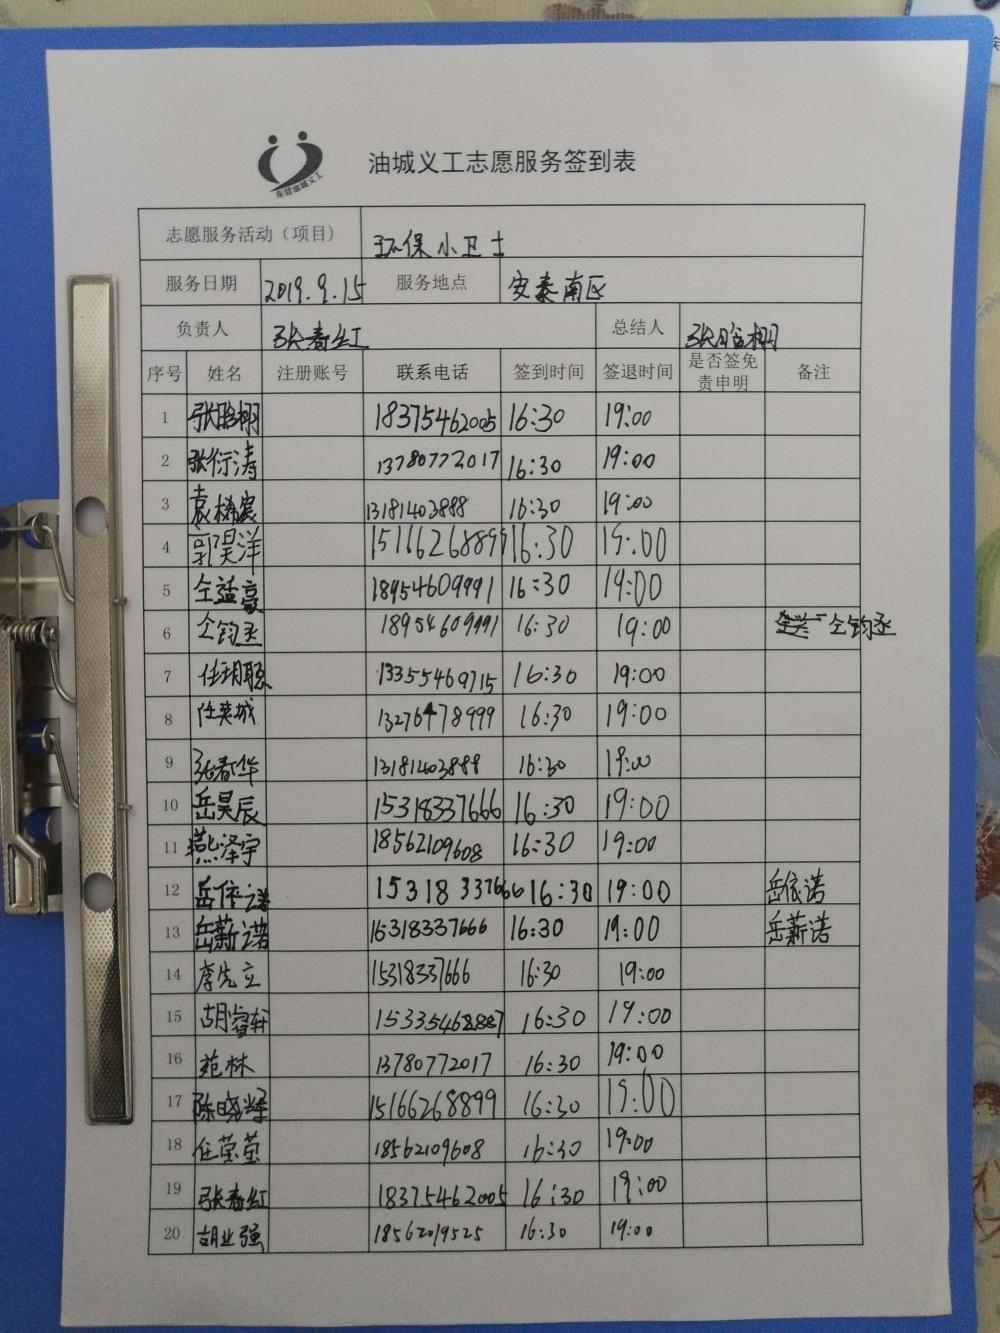 东营油城义工
油城义工志愿服务签到表
志愿服务活动（项目） 环保小卫士
服务日期 2019.9.15 服务地点 安泰南区
负责人 张春红 总结人 张晗栩
序号 姓名 注册账号 联系电话 签到时间 签退时间 是否签免责申明 备注
1 张晗栩 18375462005 16:30 19:00
2 张衍涛 13780772017 16:30 19:00
3 袁梓宸 13181403888 16:30 19:00
4 郭昊洋 15166268899 16:30 19:00
5 仝益豪 18954609991 16:30 19:00
6 仝钧丞 18954609991 16:30 19:00 仝钧丞
7 任玥聪 13355469715 16:30 19:00
8 任英城 13276478999 16:30 19:00
9 张春华 13181403888 16:30 19:00
10 岳昊辰 15318337666 16:30 19:00
11 燕泽宇 18562109608 16:30 19:00
12 岳依诺 15318337666 16:30 19:00 岳依诺
13 岳薪诺 15318337666 16:30 19:00 岳薪诺
14 李先立 15318337666 16:30 19:00
15 胡睿轩 15335468887 16:30 19:00
16 苑林 13780772017 16:30 19:00
17 陈晓辉 15166268899 16:30 19:00
18 任莹莹 18562109608 16:30 19:00
19 张春红 18375462005 16:30 19:00
20 胡业强 18562019525 16:30 19:00